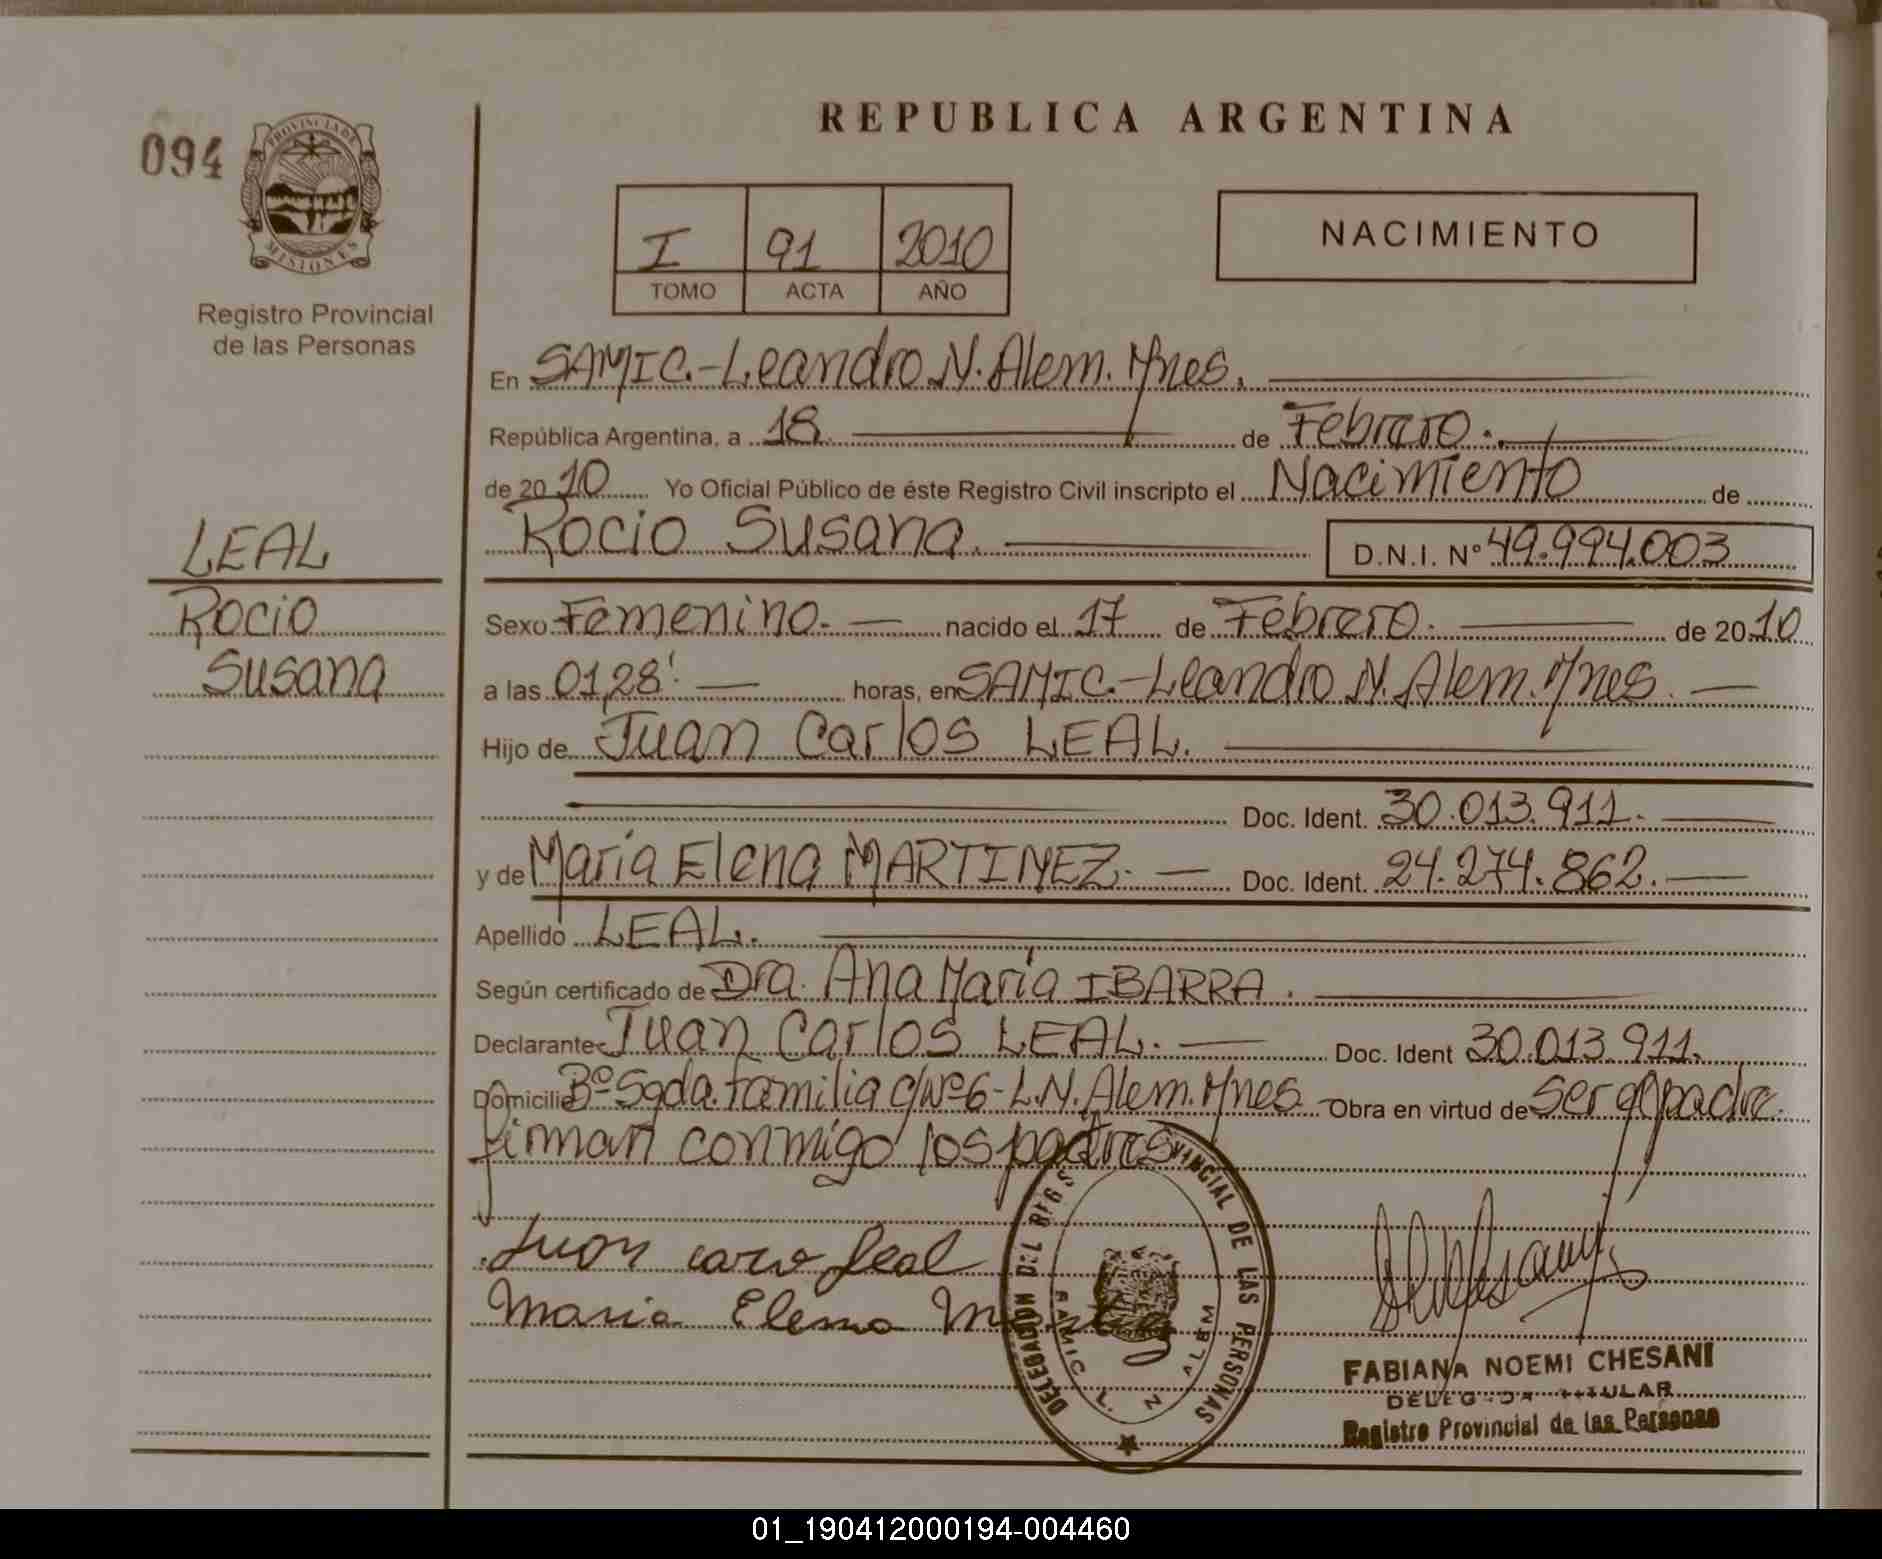 REPUBLICA ARGENTINA
094
PROVINCIA DE
MISIONES
Registro Provincial
de las Personas
I 91 2010
TOMO ACTA AÑO
NACIMIENTO
En SAMIC.-Leandro N. Alem. Mnes.
República Argentina, a 18 de Febrero.
de 2010 Yo Oficial Público de éste Registro Civil inscripto el Nacimiento de
Rocio Susana. D.N.I. Nº 49.994.003
LEAL
Rocio
Susana
Sexo Femenino. nacido el 17 de Febrero. de 2010
a las 01,28' horas, en SAMIC.-Leandro N. Alem. Mnes.
Hijo de Juan Carlos LEAL.
Doc. Ident. 30.013.911.
y de Maria Elena MARTINEZ. Doc. Ident. 24.274.862.
Apellido LEAL.
Según certificado de Dra. Ana María IBARRA.
Declarante Juan Carlos LEAL. Doc. Ident 30.013.911.
Domicilio Bº Sgda. familia c/Nº6-L.N. Alem. Mnes. Obra en virtud de ser el padre.
firman conmigo los padres
Juan Leal
Maria Elena
DELEGACION DEL REGS VINCIAL DE LAS PERSONAS
SAMIC L. N ALEM
FABIANA NOEMI CHESANI
DELEGADA TITULAR
Registro Provincial de las Personas
01_190412000194-004460